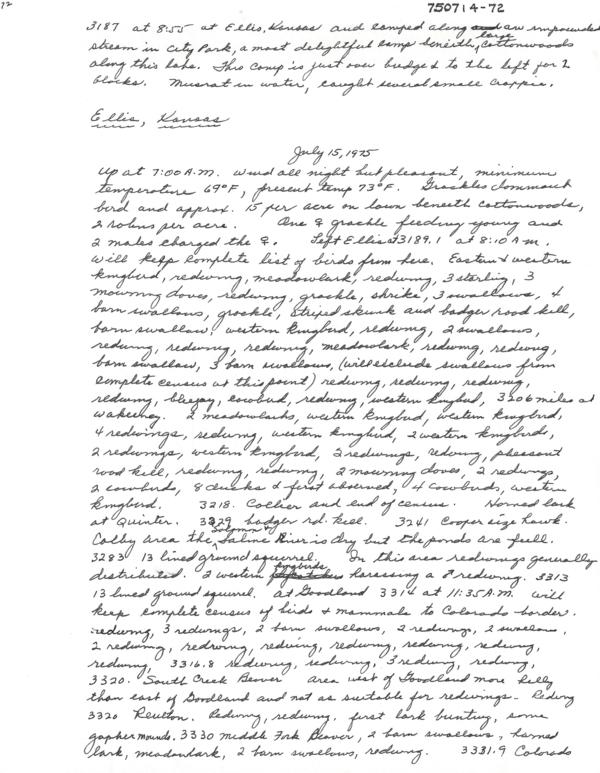 72
750714-72
3187 at 8:55 at Ellis, Kansas and camped along an impounded
stream in City Park, a most delightful camp beneath large cottonwoods
along this lake. This camp is just over bridge & to the left for 2
blocks. Musrat in water, caught several small crappie.
Ellis, Kansas
July 15, 1975
Up at 7:00 A.M. Wind all night but pleasant, minimum
temperature 69°F, present temp 73°F. Grackles dominant
bird and approx. 15 per acre on lawn beneath cottonwoods,
2 robins per acre. One ♀ grackle feeding young and
2 males charged the ♀. Left Ellis at 3189.1 at 8:10 A.M.
Will keep complete list of birds from here. Eastern & western
kingbird, redwing, meadowlark, redwing, 3 starling, 3
mourning doves, redwing, grackle, shrike, 3 swallows, 4
barn swallows, grackle, striped skunk and badger road kill,
barn swallow, western kingbird, redwing, 2 swallows,
redwing, redwing, redwing, meadowlark, redwing, redwing,
barn swallow, 3 barn swallows, (will exclude swallows from
complete census at this point) redwing, redwing, redwing,
redwing, bluejay, cowbird, redwing, western kingbird, 3206 miles at
Wakeeney. 2 meadowlarks, western kingbird, western kingbird,
4 redwings, redwing, western kingbird, 2 western kingbirds,
2 redwings, western kingbird, 2 redwings, redwing, pheasant
road kill, redwing, redwing, 2 mourning doves, 2 redwings,
2 cowbirds, 8 first observed, 4 cowbirds, western
kingbird. 3218. Collier and end of census. Horned lark
at Quinter. 3229 badger rd. kill. 3241 Cooper size hawk.
Colby area the Solomon & Saline River is dry but the ponds are full.
3283 13 lined ground squirrel. In this area redwings generally
distributed. 2 western kingbirds harassing a ♂ redwing. 3313
13 lined ground squirrel. At Goodland 3314 at 11:35 A.M. will
keep complete census of birds & mammals to Colorado border.
redwing, 3 redwings, 2 barn swallows, 2 redwings, 2 swallows,
2 redwing, redwing, redwing, redwing, redwing, redwing,
redwing, 3316.8 redwing, redwing, 3 redwing, redwing,
3320. South Creek Beaver area west of Goodland more hilly
than east of Goodland and not as suitable for redwings. Redwing
3320 Redwing, redwing, first lark bunting, some
gopher mounds. 3330 Middle Fork Beaver, 2 barn swallows, horned
lark, meadowlark, 2 barn swallows, redwing. 3331.9 Colorado